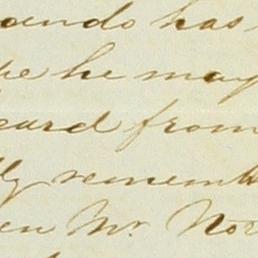 ando has
he may
eard from
ly rememb
en Mr. Nor